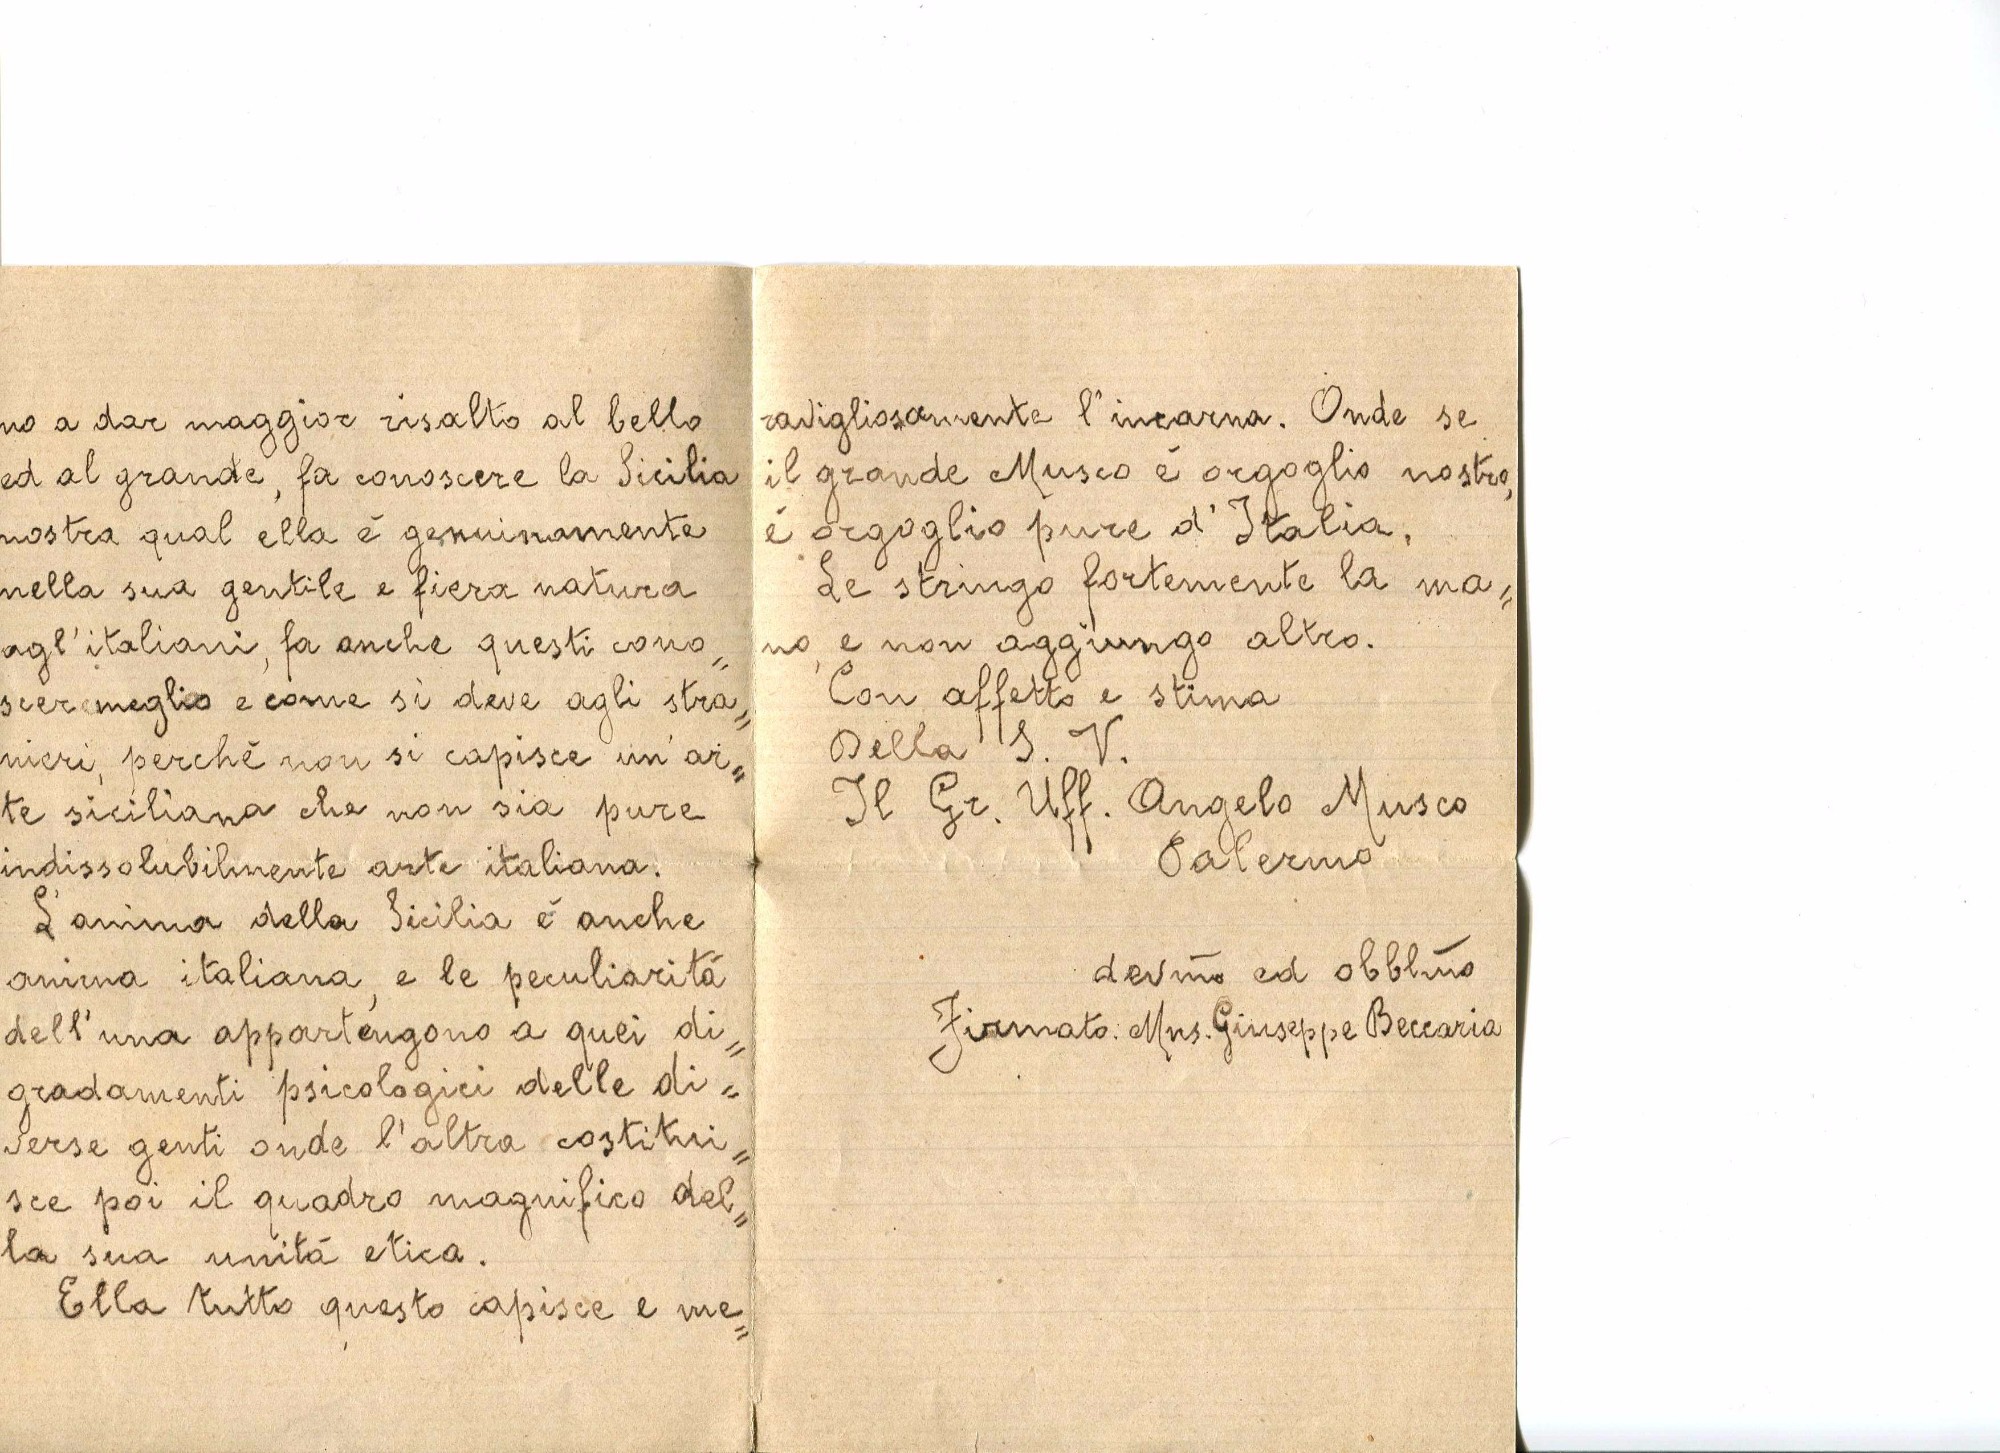 no a dar maggior risalto al bello
ed al grande, fa conoscere la Sicilia
nostra qual ella é genuinamente
nella sua gentile e fiera natura
agl'italiani, fa anche questi cono„
scer meglio e come si deve agli stra„
nieri, perché non si capisce un'ar„
te siciliana che non sia pure
indissolubilmente arte italiana.
L'anima della Sicilia é anche
anima italiana, e le peculiaritá
dell'una appartengono a quei di„
gradamenti psicologici delle di„
verse genti onde l'altra costitui„
sce poi il quadro magnifico del„
la sua unitá etica.
Ella tutto questo capisce e me„
ravigliosamente l'incarna. Onde se
il grande Musco é orgoglio nostro,
é orgoglio pure d'Italia.
Le stringo fortemente la ma„
no, e non aggiungo altro.
Con affetto e stima
Della S. V.
Il Gr. Uff. Angelo Musco
Palermo
devm̃o ed obblm̃o
Firmato: Mns. Giuseppe Beccaria